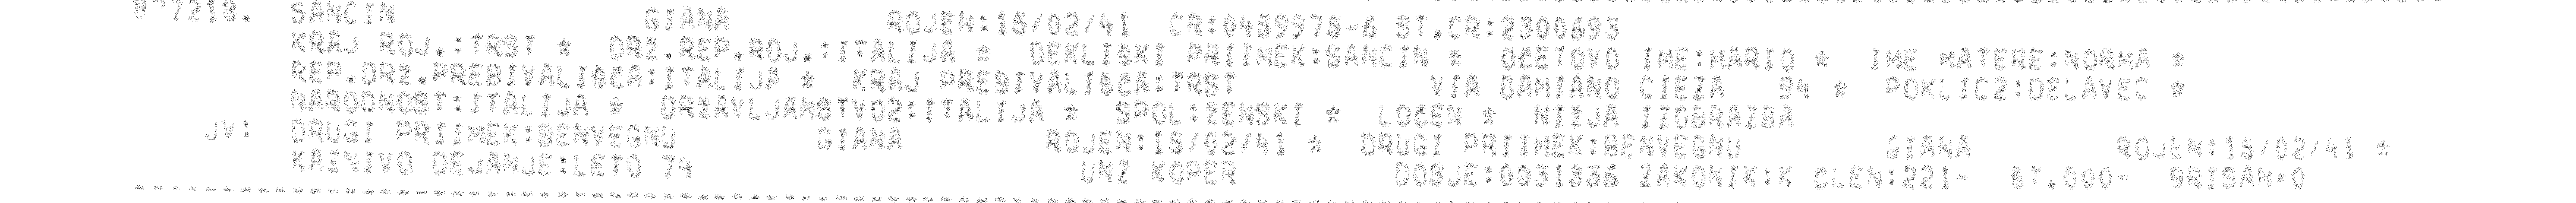 SANCIN GIANA ROJEN:15/02/41 CR:0459975-6 ST.CR:2300693
KRAJ ROJ.:TRST * DRZ.REP.ROJ.:ITALIJA * DEKLISKI PRIIMEK:SANCIN * OCETOVO IME:MARIO * IME MATERE:NORMA *
REP.DRZ.PREBIVALISCA:ITALIJA * KRAJ PREBIVALISCA:TRST VIA DAMIANO CIEZA 94 * POKLIC2:DELAVEC *
NARODNOST:ITALIJA * DRZAVLJANSTVO2:ITALIJA * SPOL:ZENSKI * LOCEN * NIZJA IZOBRAZBA
JV: DRUGI PRIIMEK:BENVEGNU GIANA ROJEN:15/02/41 * DRUGI PRIIMEK:BENVEGNU GIANA ROJEN:15/02/41 *
KAZNIVO DEJANJE:LETO 74 UNZ KOPER DOSJE:0031336 ZAKONIK:K CLEN:221- ST.000- BRISAN=0